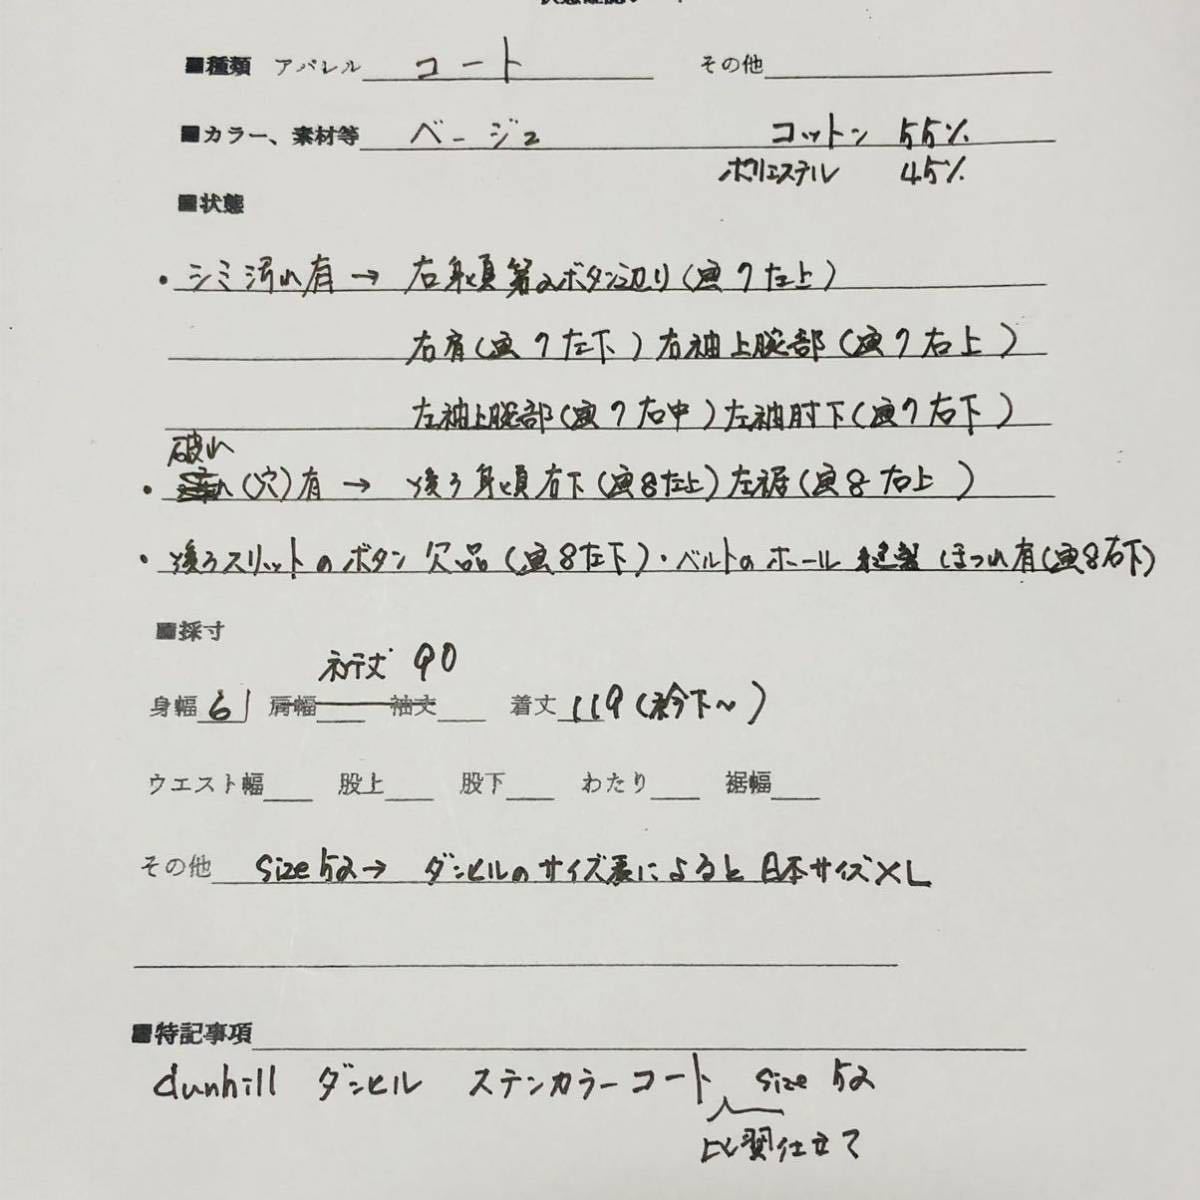 ■種類 アパレル コート その他
■カラー、素材等 ベージュ コットン 55%
ポリエステル 45%
■状態
・シミ汚れ有 → 右身頃第2ボタン辺り(画7左上)
右肩(画7左下) 右袖上腕部(画7右上)
左袖上腕部(画7右中) 左袖肘下(画7右下)
破れ
・(穴)有 → 後ろ身頃右下(画8左上) 左裾(画8右上)
・後ろスリットのボタン欠品(画8左下)・ベルトのホール ほつれ有(画8右下)
■採寸
裄丈 90
身幅 61 肩幅 袖丈 着丈 119(衿下~)
ウエスト幅 股上 股下 わたり 裾幅
その他 size 52 → ダンヒルのサイズ表によると日本サイズXL
■特記事項
dunhill ダンヒル ステンカラーコート size 52
比翼仕立て